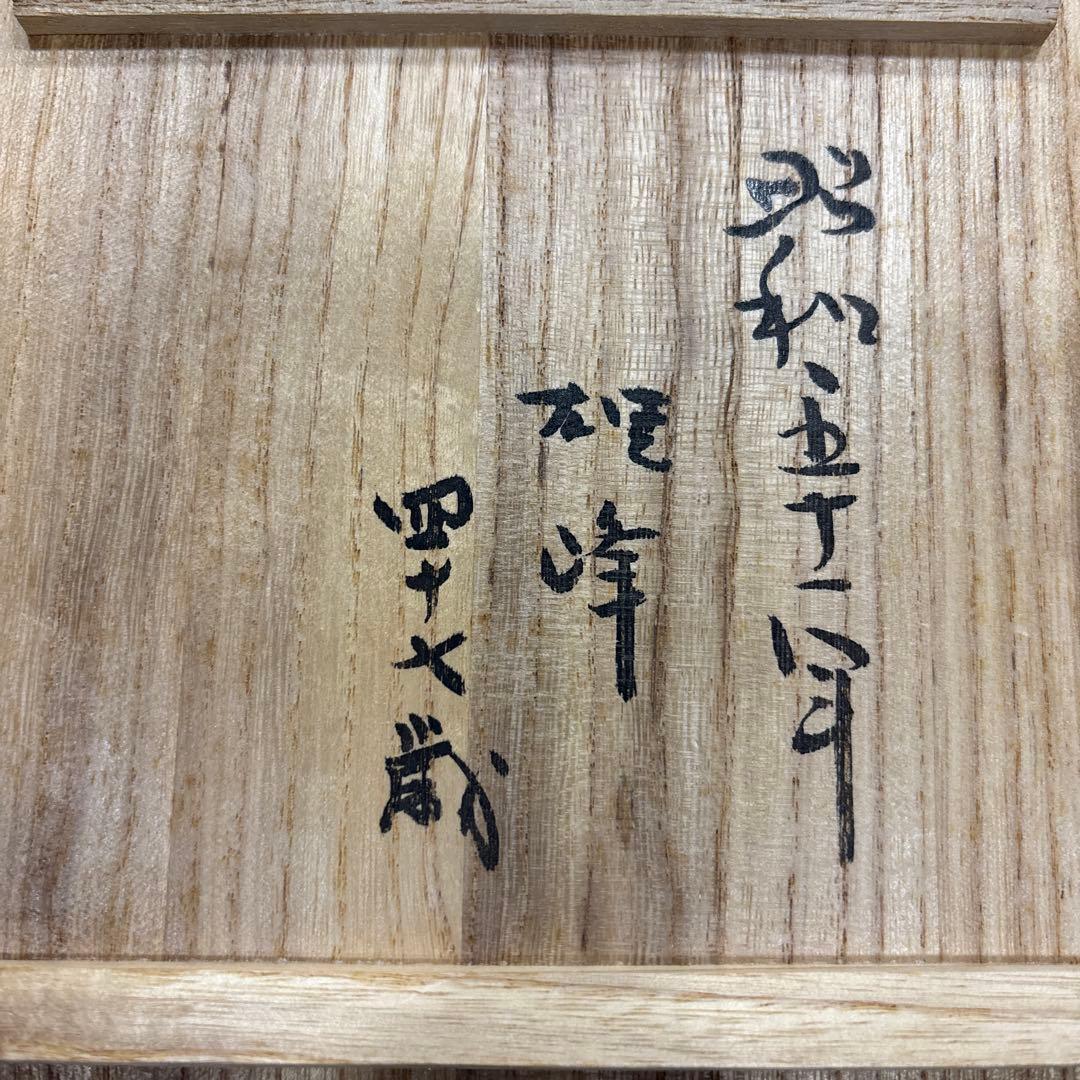 昭和五十一年
雄峰
四十七歳